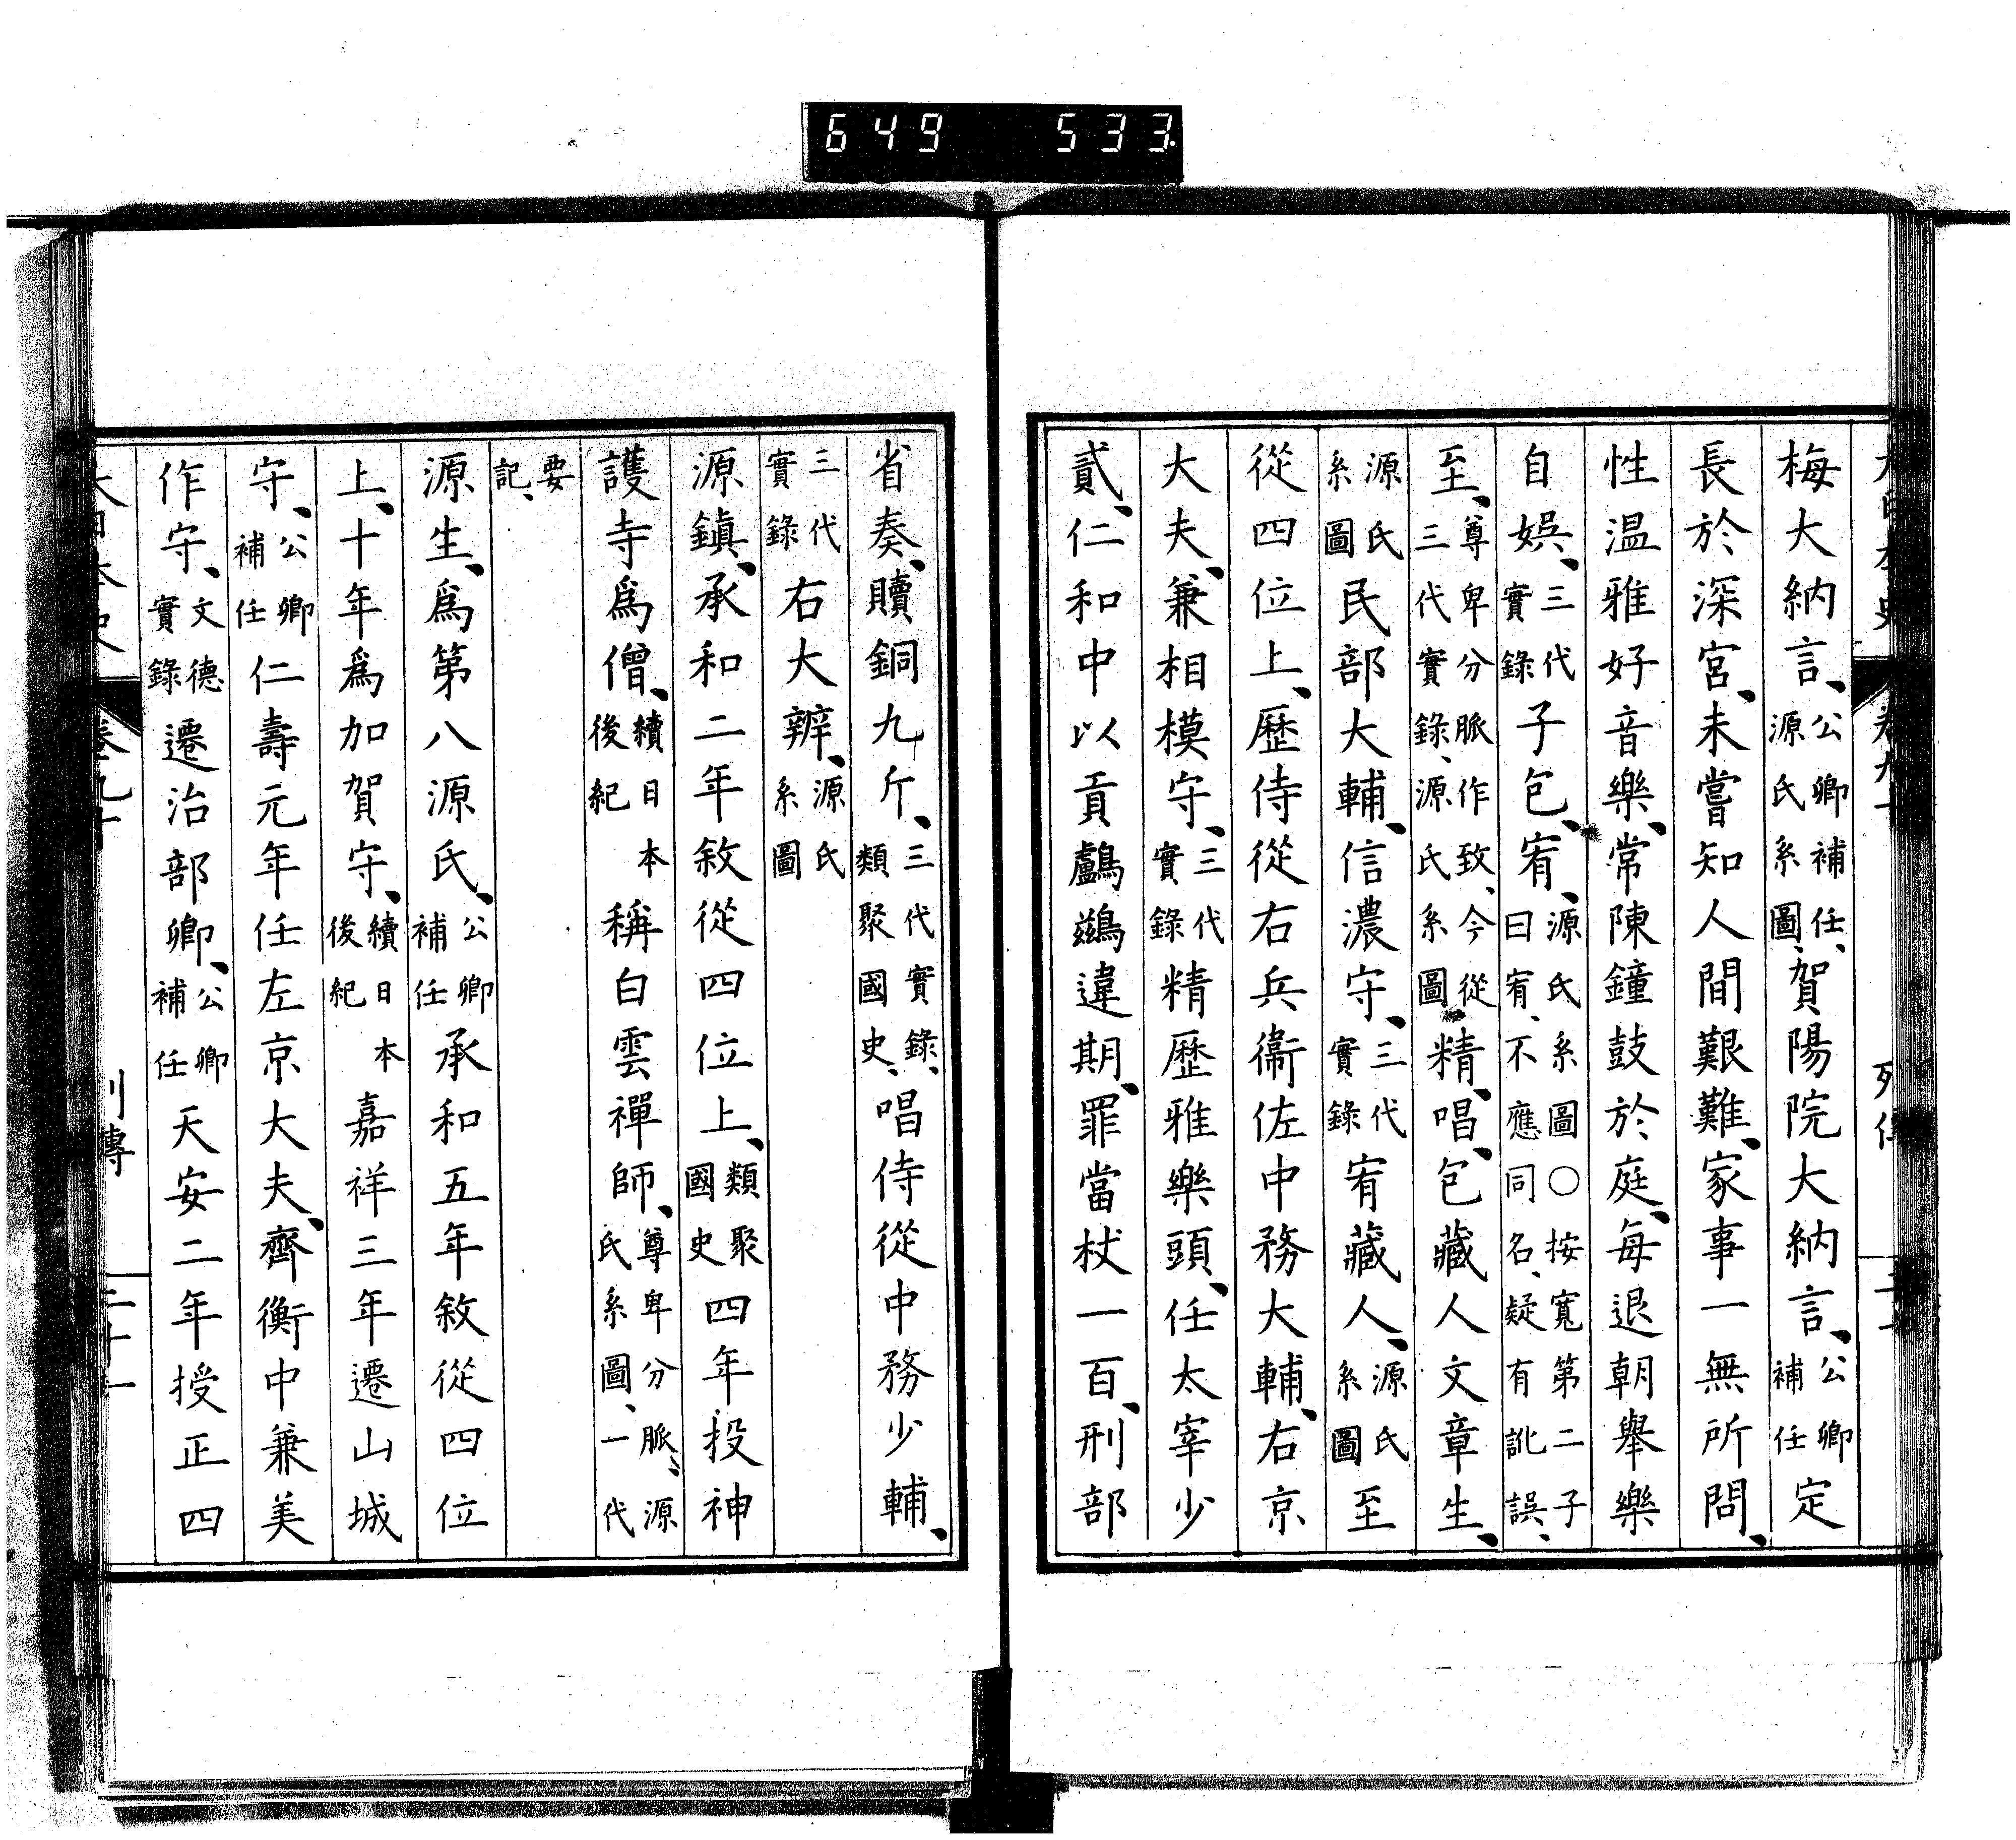 649 533
梅大納言、公卿補任、源氏系圖、賀陽院大納言、公卿補任定
長於深宮、未嘗知人間艱難、家事一無所問、
性温雅好音樂、常陳鐘鼓於庭、每退朝舉樂
自娯、三代實錄子包、宥、源氏系圖○按寬第二子曰宥、不應同名、疑有訛誤、
至、尊卑分脈作致、今從三代實錄、源氏系圖精、唱、包藏人文章生、
源氏系圖民部大輔、信濃守、三代實錄宥藏人、源氏系圖至
從四位上、歷侍從右兵衞佐中務大輔、右京
大夫、兼相模守、三代實錄精歷雅樂頭、任太宰少
貳、仁和中以貢鸕鷀違期、罪當杖一百、刑部
省奏、贖銅九斤、三代實錄、類聚國史、唱侍從中務少輔、
三代實錄右大辨、源氏系圖
源鎮、承和二年敘從四位上、類聚國史四年投神
護寺爲僧、續日本後紀稱白雲禪師、尊卑分脈、源氏系圖、一代
要記、
源生、爲第八源氏、公卿補任承和五年敘從四位
上、十年爲加賀守、續日本後紀嘉祥三年遷山城
守、公卿補任仁壽元年任左京大夫、齊衡中兼美
作守、文德實錄遷治部卿、公卿補任天安二年授正四
大日本史 卷九十 列傳 二十一